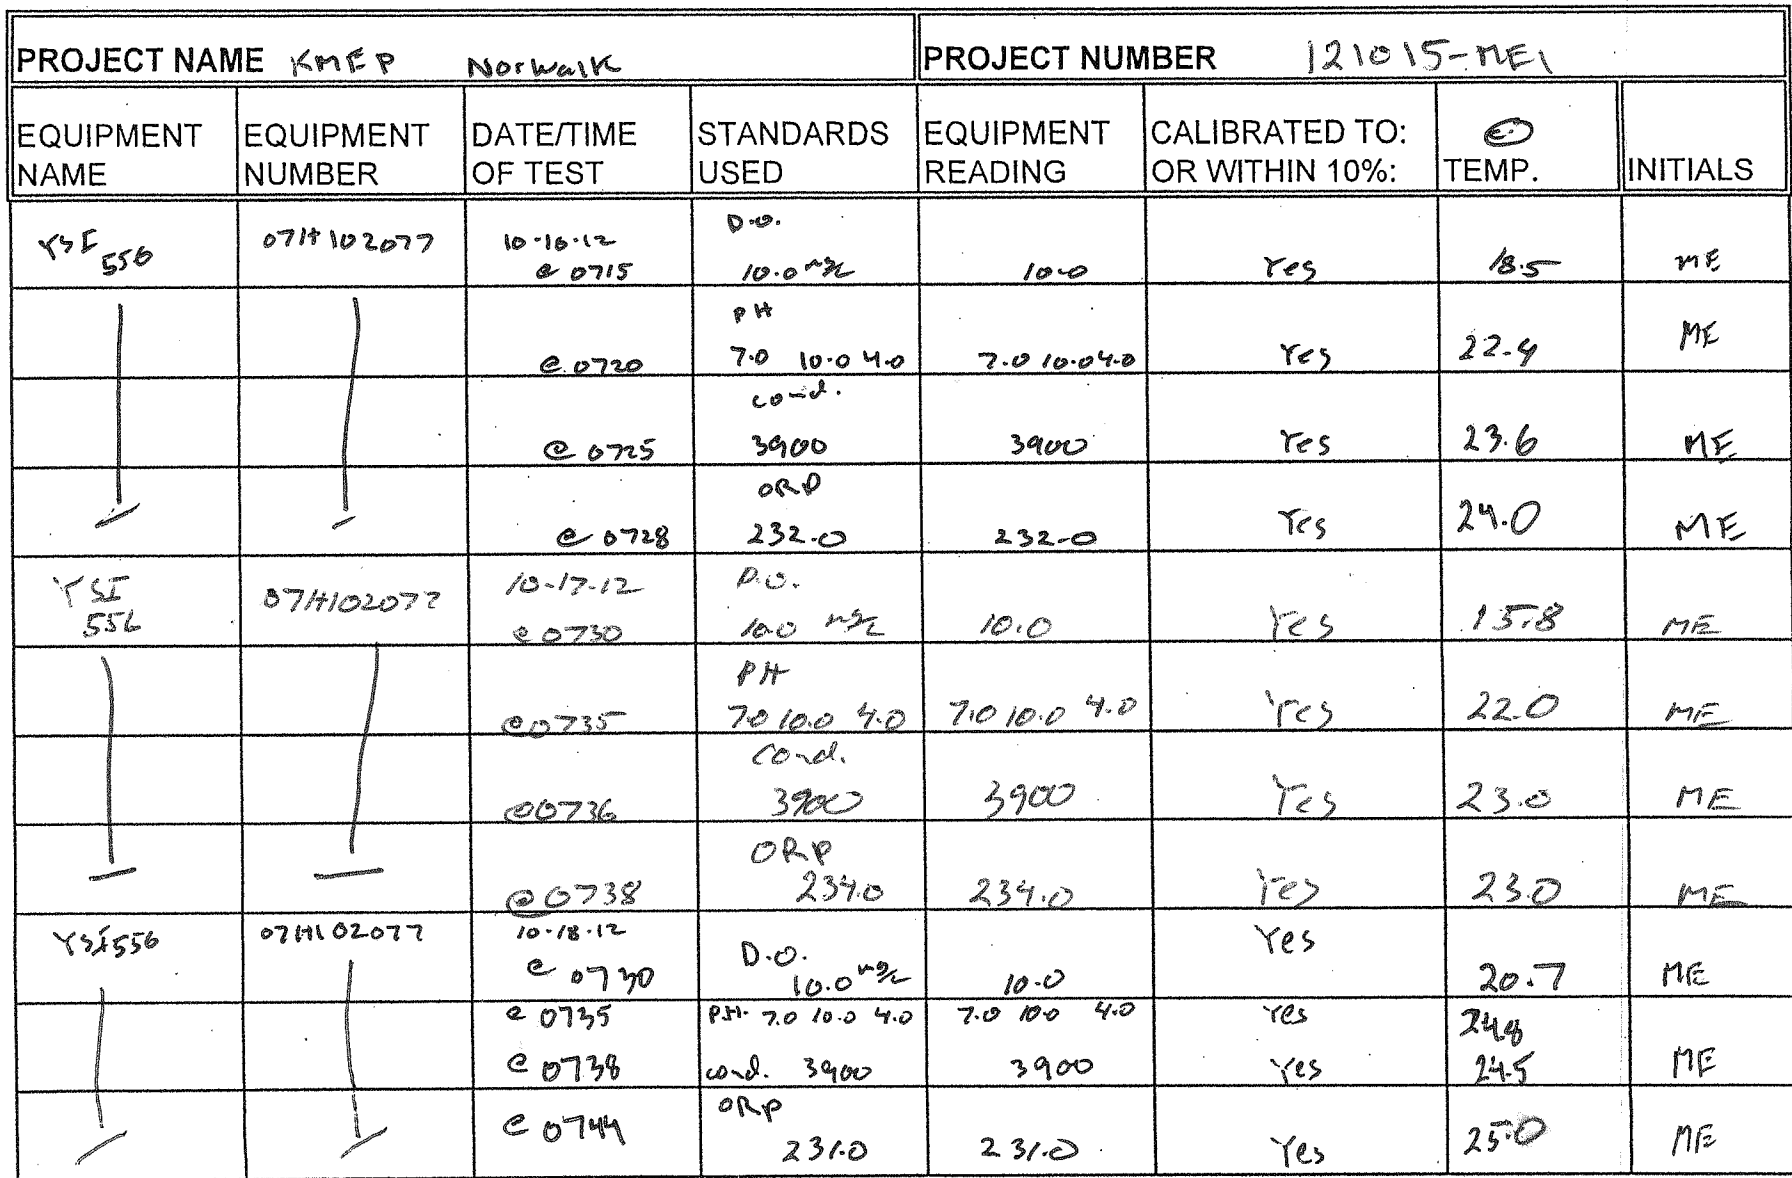 PROJECT NAME KMEP Norwalk PROJECT NUMBER 121015-ME1
EQUIPMENT NAME EQUIPMENT NUMBER DATE/TIME OF TEST STANDARDS USED EQUIPMENT READING CALIBRATED TO: OR WITHIN 10%: TEMP. INITIALS
YSI 556 07H102077 10-16-12 @ 0715 D.O. 10.0 mg/L 10.0 Yes 18.5 ME
@ 0720 PH 7.0 10.0 4.0 7.0 10.0 4.0 Yes 22.4 ME
@ 0725 cond. 3900 3900 Yes 23.6 ME
@ 0728 ORP 232.0 232.0 Yes 24.0 ME
YSI 556 07H102077 10-17-12 @ 0730 D.O. 10.0 mg/L 10.0 Yes 15.8 ME
@ 0735 PH 7.0 10.0 4.0 7.0 10.0 4.0 Yes 22.0 ME
@ 0736 Cond. 3900 3900 Yes 23.0 ME
@ 0738 ORP 234.0 234.0 Yes 23.0 ME
YSI 556 07H102077 10-18-12 @ 0730 D.O. 10.0 mg/L 10.0 Yes 20.7 ME
@ 0735 PH. 7.0 10.0 4.0 7.0 10.0 4.0 Yes 24.8
@ 0738 cond. 3900 3900 Yes 24.5 ME
@ 0744 ORP 231.0 231.0 Yes 25.0 ME